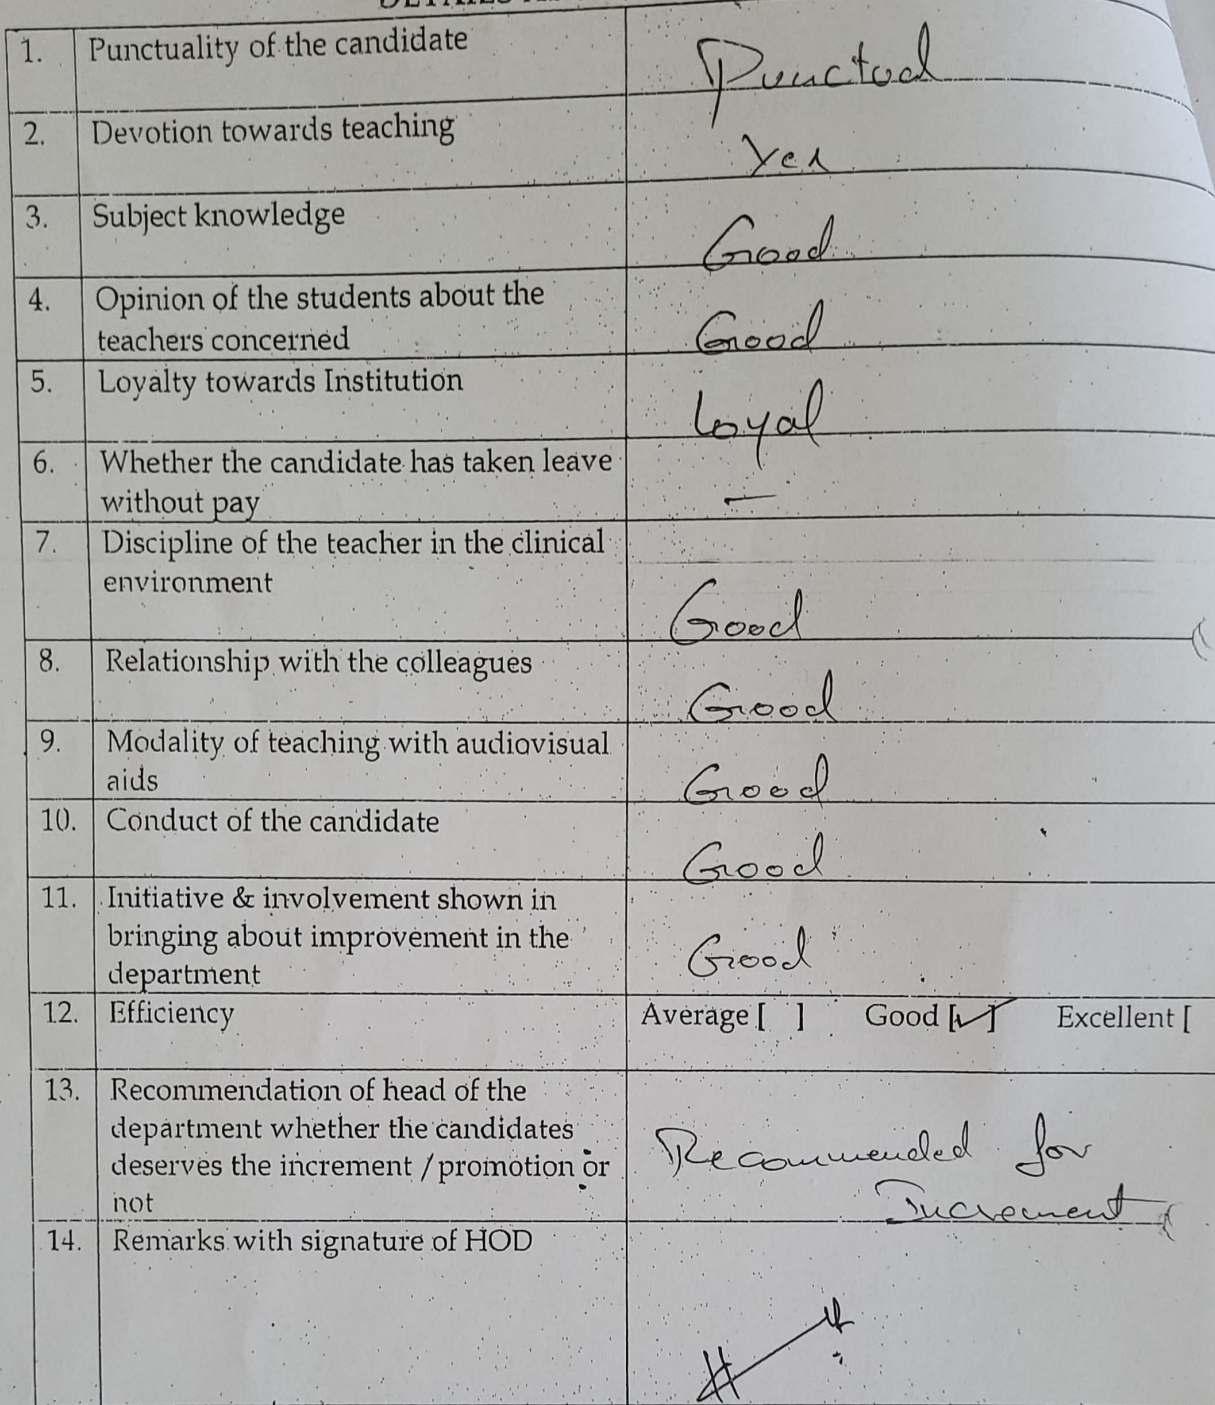 1. Punctuality of the candidate Punctual
2. Devotion towards teaching Yes
3. Subject knowledge Good
4. Opinion of the students about the
teachers concerned Good
5. Loyalty towards Institution Loyal
6. Whether the candidate has taken leave
without pay —
7. Discipline of the teacher in the clinical
environment Good
8. Relationship with the colleagues Good
9. Modality of teaching with audiovisual
aids Good
10. Conduct of the candidate Good
11. Initiative & involvement shown in
bringing about improvement in the
department Good
12. Efficiency Average [ ] Good [✓] Excellent [
13. Recommendation of head of the
department whether the candidates
deserves the increment / promotion or
not
Recommended for
Increment
14. Remarks with signature of HOD